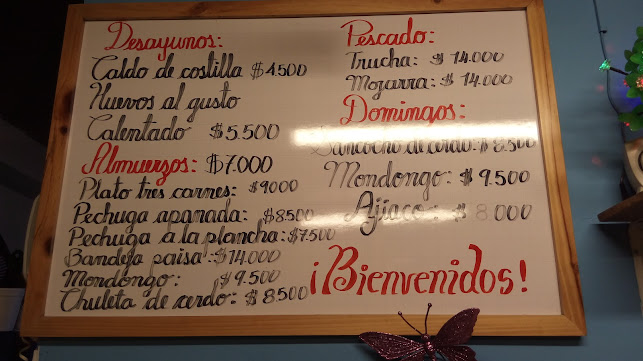 Desayunos:
Caldo de costilla $4.500
Huevos al gusto
Calentado $5.500
Almuerzos: $7.000
Plato tres carnes: $9000
Pechuga apanada: $8500
Pechuga a la plancha: $7.500
Bandeja paisa: $14.000
Mondongo: $9.500
Chuleta de cerdo: $8500
Pescado:
Trucha: $14.000
Mojarra: $14.000
Domingos:
Sancocho de cerdo: $8.500
Mondongo: $9.500
Ajiaco: $8.000
¡Bienvenidos!